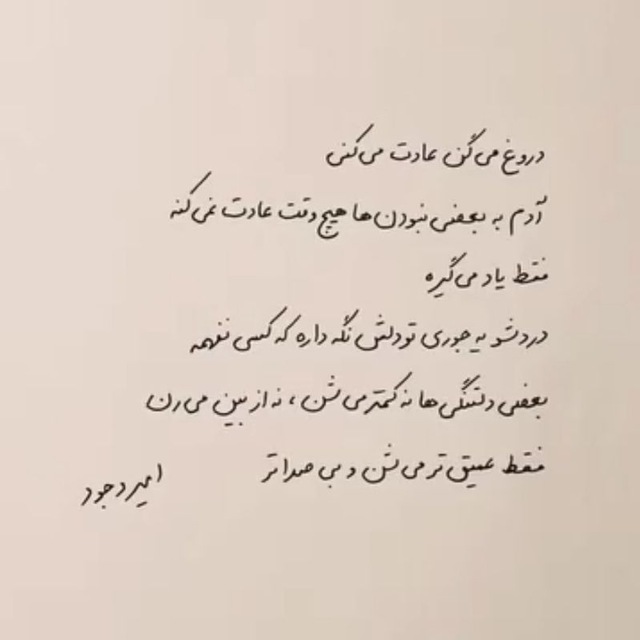 دروغ می‌گن عادت می‌کنی
آدم به بعضی نبودن‌ها هیچ وقت عادت نمی‌کنه
فقط یاد می‌گیره
دردشو یه جوری تو دلش نگه داره که کسی نفهمه
بعضی دلتنگی‌ها نه کمتر می‌شن، نه از بین می‌رن
فقط عمیق‌تر می‌شن و بی صداتر
امیر وجود